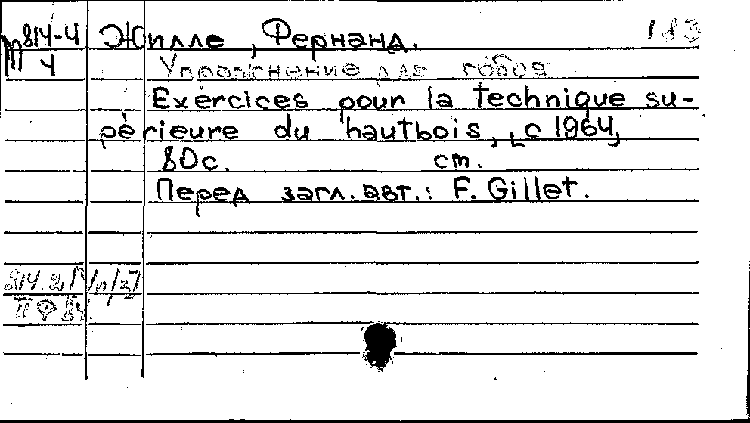 814-4 Жилле, Фернанд. 183
4 Упражнение для гобоя
Exercices pour la technique su-
périeure du hautbois, [с 1964,
80с. cm.
Перед загл. авт.: F. Gillet.